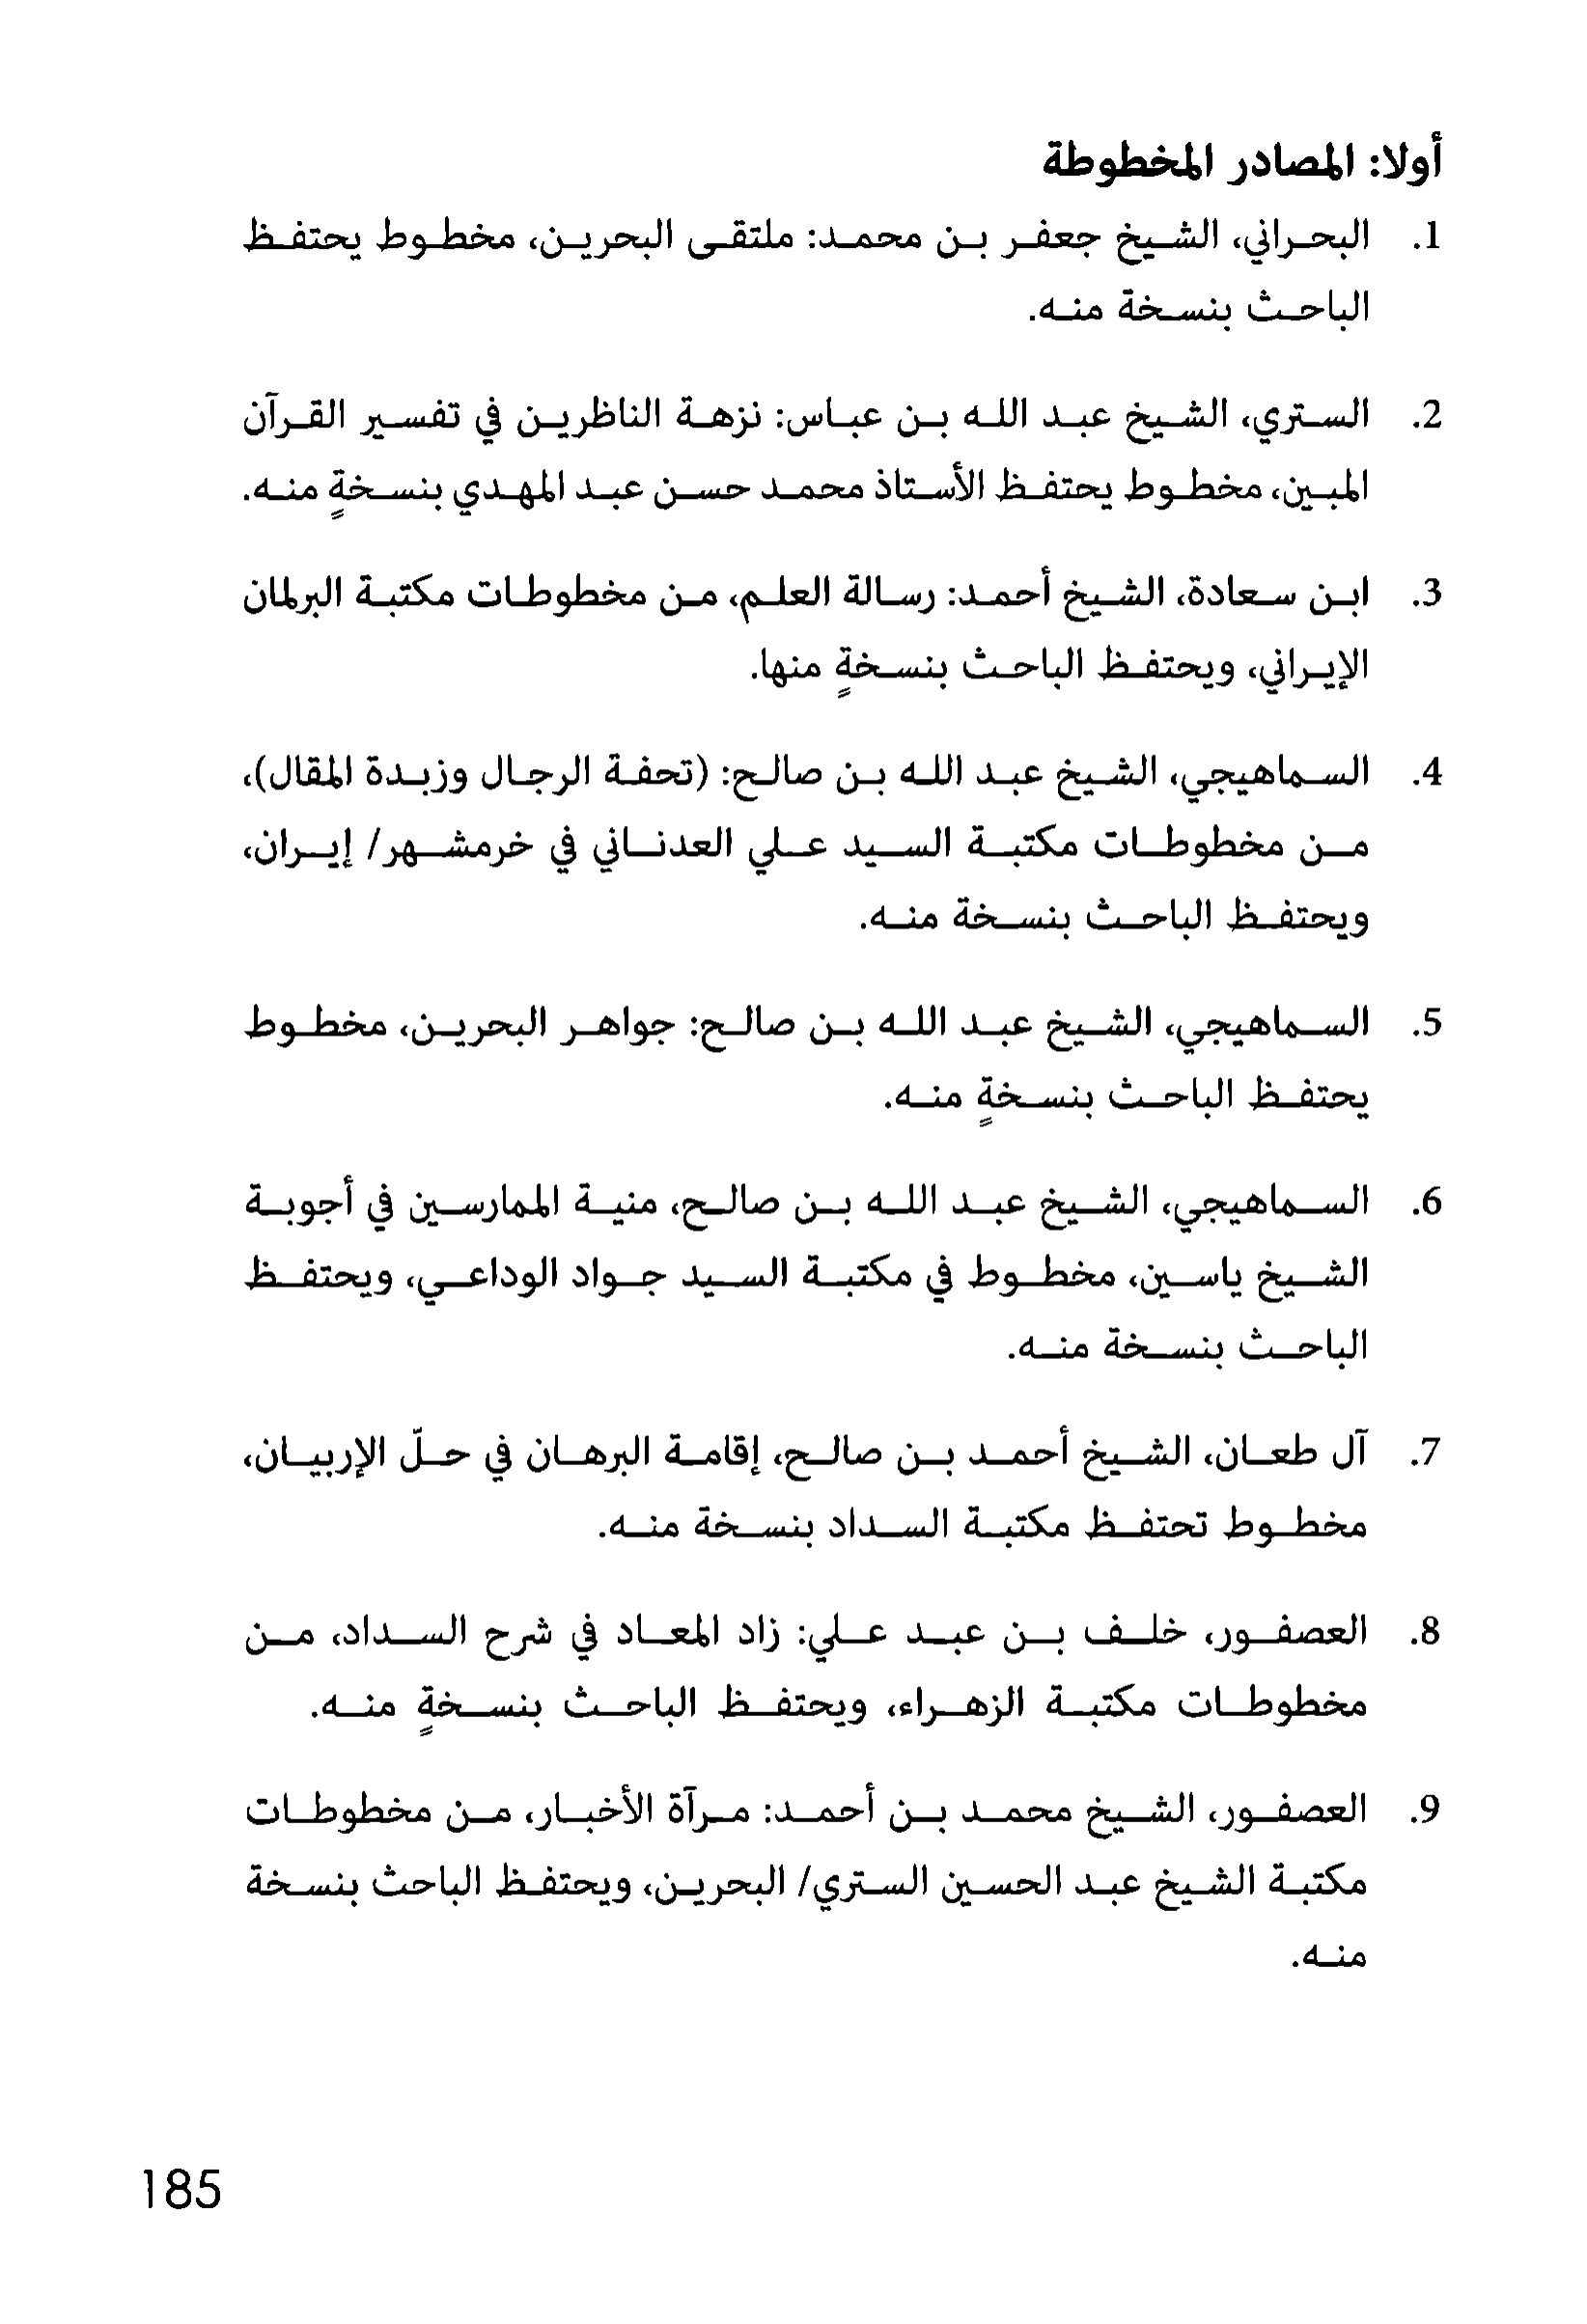 أولا: المصادر المخطوطة
1. البحراني، الشيخ جعفر بن محمد: ملتقى البحرين، مخطوط يحتفظ
الباحث بنسخة منه.
2. الستري، الشيخ عبد الله بن عباس: نزهة الناظرين في تفسير القرآن
المبين، مخطوط يحتفظ الأستاذ محمد حسن عبد المهدي بنسخةٍ منه.
3. ابن سعادة، الشيخ أحمد: رسالة العلم، من مخطوطات مكتبة البرلمان
الإيراني، ويحتفظ الباحث بنسخةٍ منها.
4. السماهيجي، الشيخ عبد الله بن صالح: (تحفة الرجال وزبدة المقال)،
من مخطوطات مكتبة السيد علي العدناني في خرمشهر/ إيران،
ويحتفظ الباحث بنسخة منه.
5. السماهيجي، الشيخ عبد الله بن صالح: جواهر البحرين، مخطوط
يحتفظ الباحث بنسخةٍ منه.
6. السماهيجي، الشيخ عبد الله بن صالح، منية الممارسين في أجوبة
الشيخ ياسين، مخطوط في مكتبة السيد جواد الوداعي، ويحتفظ
الباحث بنسخة منه.
7. آل طعان، الشيخ أحمد بن صالح، إقامة البرهان في حلّ الإربيان،
مخطوط تحتفظ مكتبة السداد بنسخة منه.
8. العصفور، خلف بن عبد علي: زاد المعاد في شرح السداد، من
مخطوطات مكتبة الزهراء، ويحتفظ الباحث بنسخةٍ منه.
9. العصفور، الشيخ محمد بن أحمد: مرآة الأخبار، من مخطوطات
مكتبة الشيخ عبد الحسين الستري/ البحرين، ويحتفظ الباحث بنسخة
منه.
185